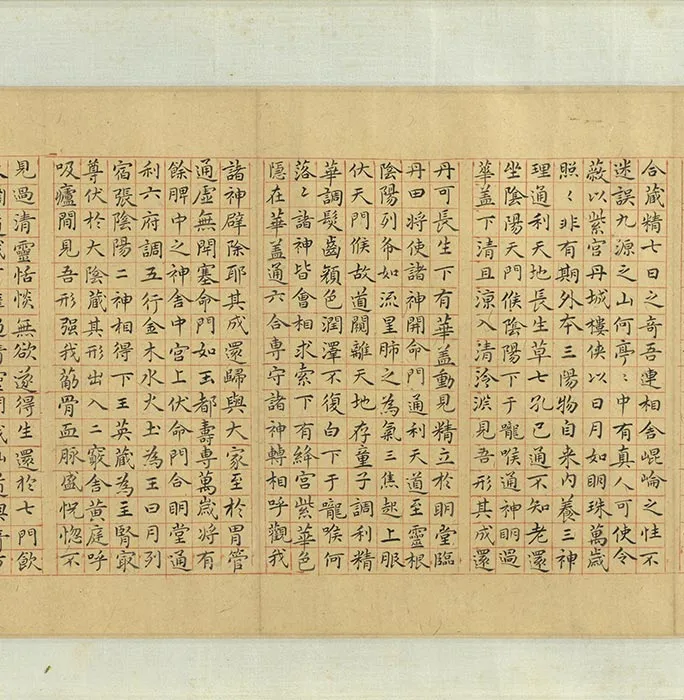 合藏精七日之奇吾連相舍崐崘之性不
迷誤九源之山何亭〻中有真人可使令
蔽以紫宮丹城樓俠以日月如明珠萬歲
照〻非有期外本三陽物自来内養三神
理通利天地長生草七孔已通不知老還
坐陰陽天門候陰陽下于嚨喉通神明過
華盖下清且涼入清泠淵見吾形其成還
丹可長生下有華盖動見精立於明堂臨
丹田將使諸神開命門通利天道至靈根
陰陽列布如流星肺之為氣三焦起上服
伏天門候故道闚離天地存童子調利精
華調髮齒顏色潤澤不復白下于嚨喉何
落〻諸神皆會相求索下有絳宮紫華色
隱在華盖通六合專守諸神轉相呼觀我
諸神辟除耶其成還歸與大家至於胃管
通虛無閉塞命門如玉都壽專萬歲將有
餘脾中之神舍中宮上伏命門合明堂通
利六府調五行金木水火土為王日月列
宿張陰陽二神相得下玉英藏為主腎㝡
尊伏於大陰藏其形出入二竅舍黃庭呼
吸廬間見吾形强我筋骨血脉盛恍惚不
見過清靈恬惔無欲遂得生還於七門飲